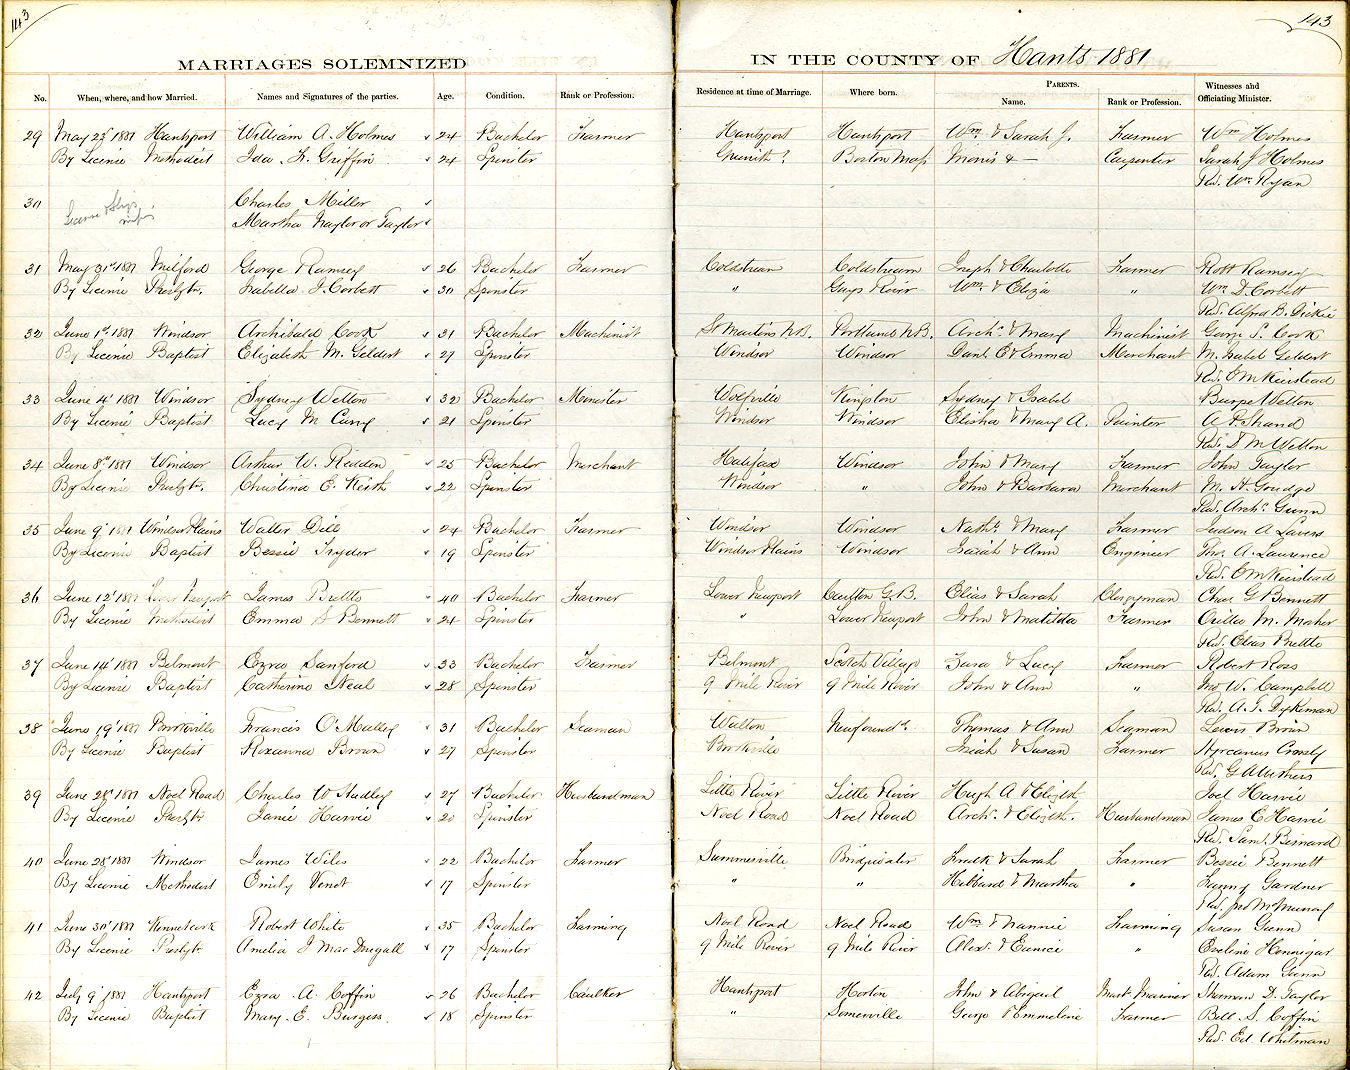 143
143
MARRIAGES SOLEMNIZED IN THE COUNTY OF Hants 1881
No. When, where, and how Married. Names and Signatures of the parties. Age. Condition. Rank or Profession. Residence at time of Marriage. Where born. PARENTS. Name. Rank or Profession. Witnesses and Officiating Minister.
29 May 23d 1881 Hantsport William A. Holmes 24 Bachelor Farmer Hantsport Hantsport Wm. & Sarah J. Farmer Wm Holmes
By License Methodist Ida. L. Griffin 24 Spinster Boston Mass Morris & — Carpenter Sarah J Holmes
Rd. Wm. Ryan
30 Charles Miller
License & Slip Martha Naylor or Taylor
31 May 31st 1881 Milford George Ramsey 26 Bachelor Farmer Coldstream Coldstream Joseph & Charlotte Farmer Robt Ramsey
By License Presbytn. Isabella J. Corbett 30 Spinster " Guys River Wm. & Eliza " Wm. D. Corbett
Rd. Alfred B. Dickie
32 June 1st 1881 Windsor Archibald Cook 31 Bachelor Machinist St Martins N.B. Portland N.B. Archd. & Mary Machinist George S. Cook
By License Baptist Elizabeth M. Geldert 27 Spinster Windsor Windsor Danl. E & Emma Merchant M. Isabel Geldert
Rd. E M Keirstead
33 June 4' 1881 Windsor Sydney Welton 32 Bachelor Minister Wolfville Kingston Sydney & Isabel Burpe Welton
By License Baptist Lucy M Curry 21 Spinster Windsor Windsor Elisha & Mary A. Painter A. P. Shand
Rd. D M Welton
34 June 8th 1881 Windsor Arthur W. Redden 25 Bachelor Merchant Halifax Windsor John & Mary Farmer John Taylor
By License Presbytn. Christina E. Keith 22 Spinster Windsor " John & Barbara Merchant M. H. Goudge
Rd. Archd. Gunn
35 June 9' 1881 Windsor Plains Walter Dill 24 Bachelor Farmer Windsor Windsor Nathl. & Mary Farmer Judson A Lavers
By License Baptist Bessie Tryder 19 Spinster Windsor Plains Windsor Isaiah & Ann Engineer Jno. A. Laurence
Rd. E M Keirstead
36 June 12' 1881 Lower Newport James Brettle 40 Bachelor Farmer Lower Newport G. B. Elias & Sarah Clergyman Chas G Bennett
By License Methodist Emma S Bennett 24 Spinster " Lower Newport John & Matilda Farmer M. Mosher
Rd. Elias Brettle
37 June 14' 1881 Belmont Ezra Sanford 33 Bachelor Farmer Belmont Scotch Village & Lucy Farmer Robert Ross
By License Baptist Catherine Neal 28 Spinster 9 Mile River 9 Mile River John & Ann " Jno W. Campbell
Rd. A. F. Dykeman
38 June 19' 1881 Brookville Francis O'Malley 31 Bachelor Seaman Walton Newfoundd. Thomas & Ann Seaman Lewis Brown
By License Baptist Roxanna Brown 27 Spinster Brookville Isiah & Susan Farmer Hyrcanus Crosby
Rd. G A Weathers
39 June 28' 1881 Noel Road Charles W Hadley 27 Bachelor Husbandman Little River Little River Hugh A & Elizth Joel Harvie
By License Presbytn Janie Harvie 20 Spinster Noel Road Noel Road Archd. & Elizth. Husbandman James E Harvie
Rd. Saml. Bernard
40 June 28' 1881 Windsor James Wiles 22 Bachelor Farmer Summerville Bridgwater Fredk & Sarah Farmer Bessie Bennett
By License Methodist Emily Venot 17 Spinster " " Hibbard & Martha " Fanny Gardner
Rd. Jno McMurray
41 June 30' 1881 Kennetcook Robert White 35 Bachelor Farming Noel Road Noel Road Wm & Nannie Farming Susan Gunn
By License Presbytn. Amelia J MacDougall 17 Spinster 9 Mile River 9 Mile River Alexr. & Eunice " Eveline Hennigar
Rd. Adam Gunn
42 July 9' 1881 Hantsport Ezra A. Coffin 26 Bachelor Caulker Hantsport Horton John & Abigail Mast. Mariner Sherman D. Taylor
By License Baptist Mary. E. Burgess 18 Spinster " Somerville George & Emmeline Farmer Bell. S. Coffin
Rd. Ed. Whitman